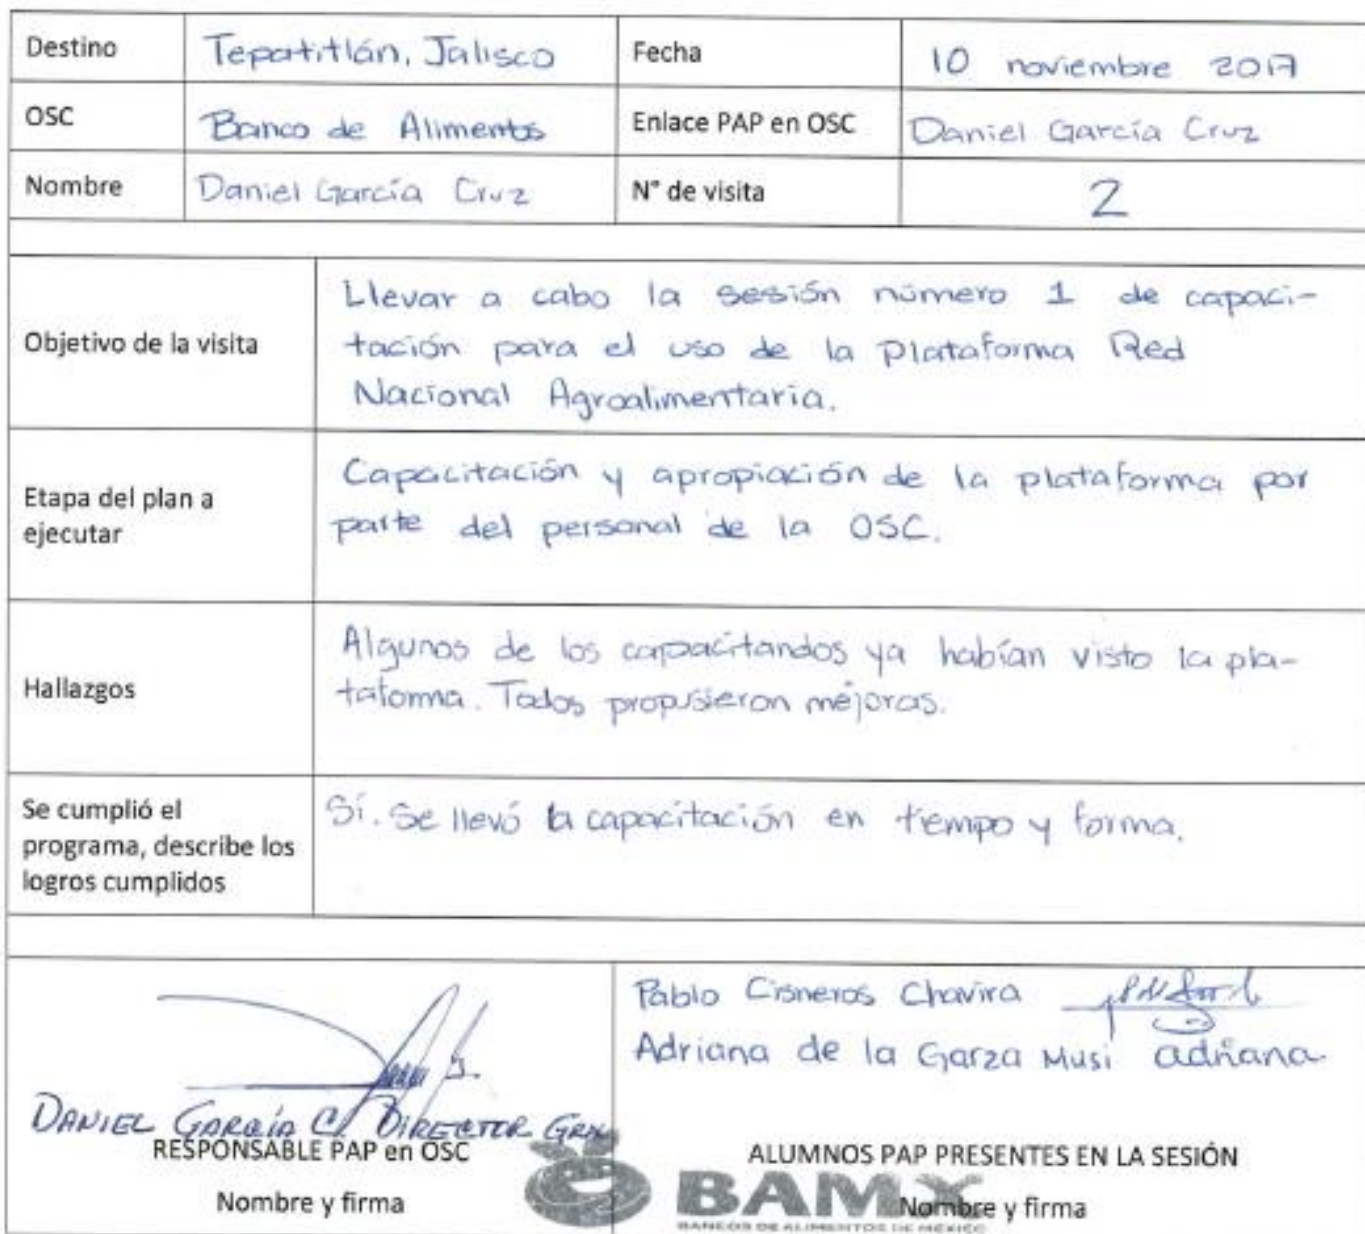 Destino Tepatitlán, Jalisco Fecha 10 noviembre 2017
OSC Banco de Alimentos Enlace PAP en OSC Daniel García Cruz
Nombre Daniel García Cruz N° de visita 2
Objetivo de la visita
Llevar a cabo la sesión número 1 de capaci-
tación para el uso de la Plataforma Red
Nacional Agroalimentaria.
Etapa del plan a
ejecutar
Capacitación y apropiación de la plataforma por
parte del personal de la OSC.
Hallazgos
Algunos de los capacitandos ya habían visto la pla-
taforma. Todos propusieron mejoras.
Se cumplió el
programa, describe los
logros cumplidos
Sí. Se llevó la capacitación en tiempo y forma.
DANIEL GARCÍA C. DIRECTOR
RESPONSABLE PAP en OSC
Nombre y firma
Pablo Cisneros Chavira
Adriana de la Garza Musi adriana
ALUMNOS PAP PRESENTES EN LA SESIÓN
Nombre y firma
BAMX
BANCOS DE ALIMENTOS DE MÉXICO